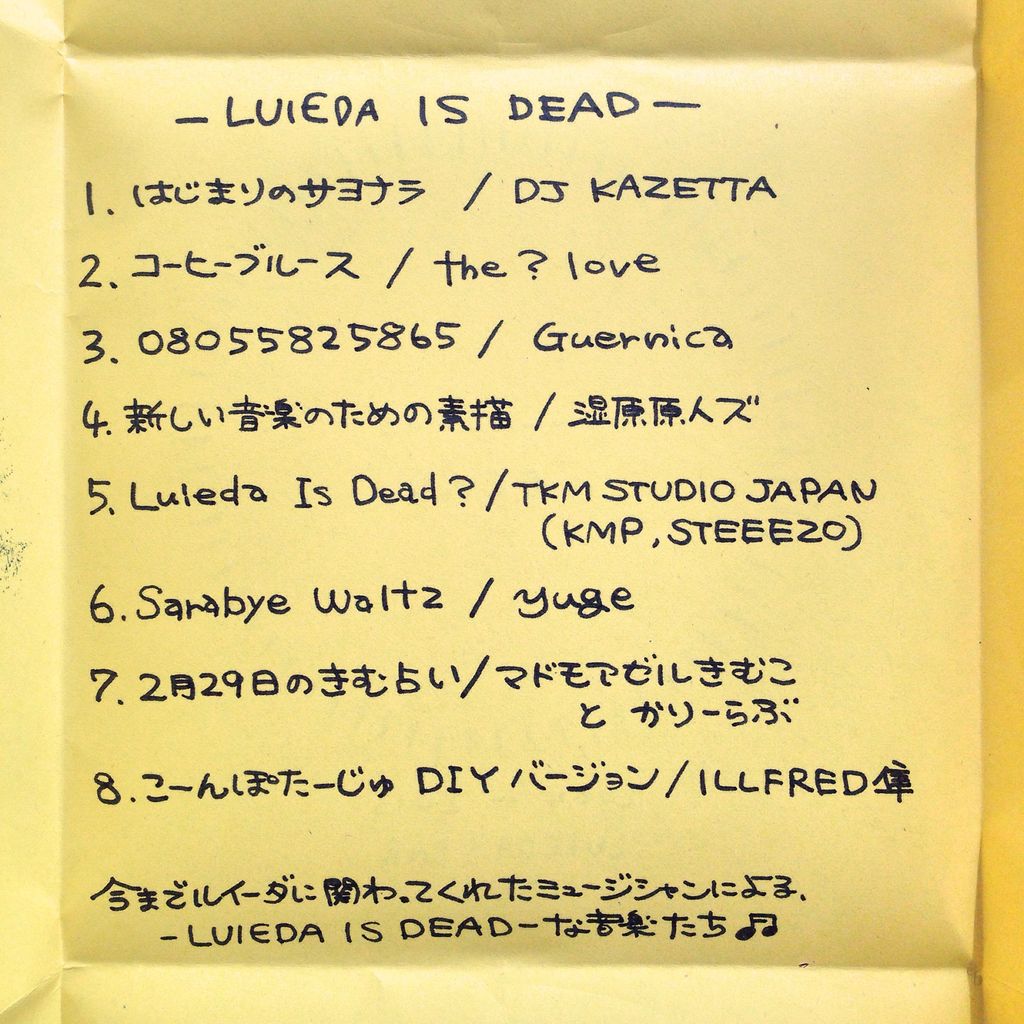 - LUIEDA IS DEAD -
1. はじまりのサヨナラ / DJ KAZETTA
2. コーヒーブルース / the ? love
3. 08055825865 / Guernica
4. 新しい音楽のための素描 / 湿原原人ズ
5. Luieda Is Dead? / TKM STUDIO JAPAN
(KMP, STEEEZO)
6. Sarabye Waltz / yuge
7. 2月29日のきむ占い / マドモアゼルきむこ
と かりーらぶ
8. こーんぽたーじゅ DIY バージョン / ILLFRED隼
今までルイーダに関わってくれたミュージシャンによる、
- LUIEDA IS DEAD - な音楽たち♫